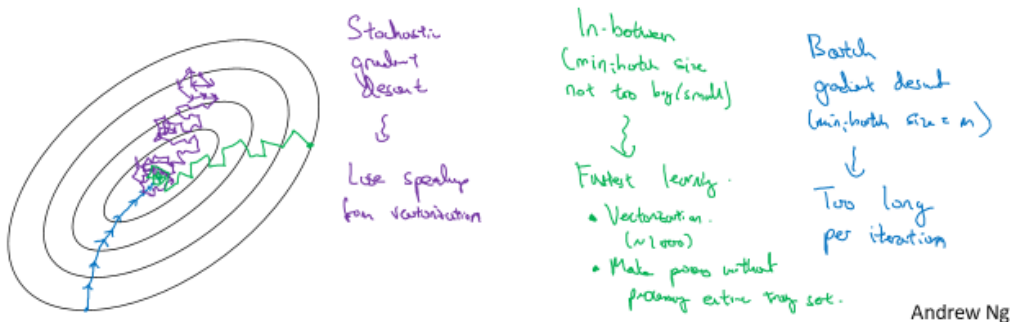 Stochastic
gradient
descent
Lose speedup
from vectorization
In-between
(mini-batch size
not too big/small)
Fastest learning.
• Vectorization.
(~1000)
• Make progress without
processing entire training set.
Batch
gradient descent
(mini-batch size = m)
Too long
per iteration
Andrew Ng